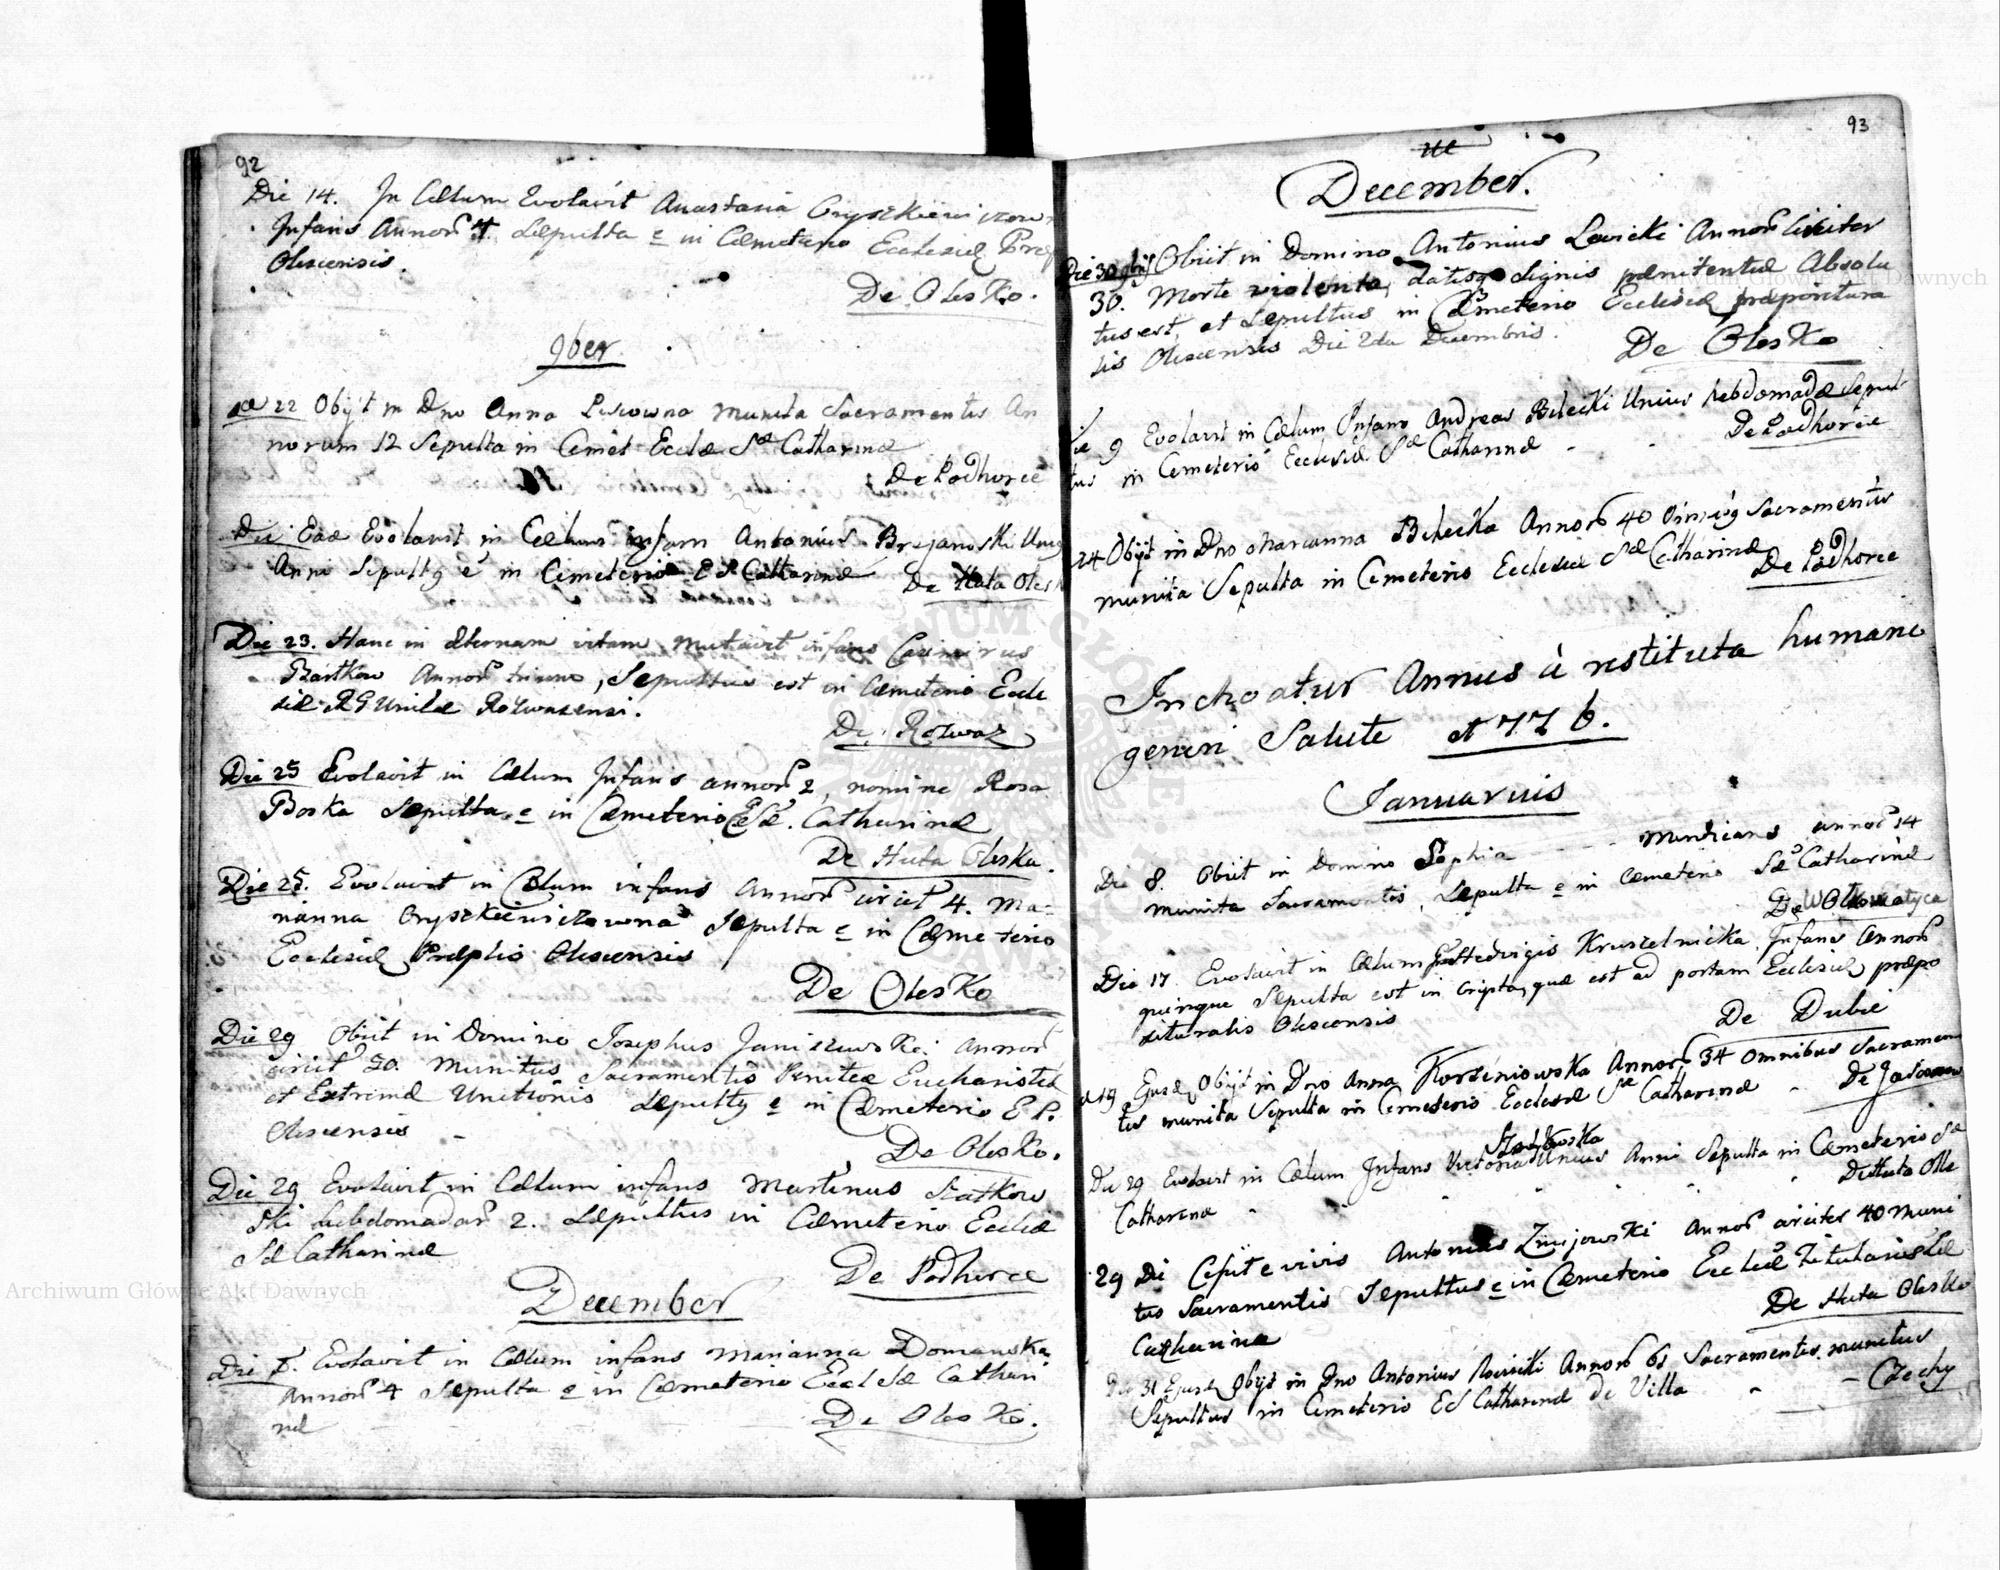 92
Die 14. In Cælum Evolavit Anastasia Gryszkiewiczow
Infans Annorum 4. Sepulta e in Cæmeterio Ecclesiæ Præp
Olescensis.
De Olesko.
9ber
22 Obijt in Dno Anna munita Sacramentis An
norum 12 Sepulta in Cemet Ecclæ Sæ Catharinæ
De Podhorce
Die Eãd Evolavit in Cælum infans Antonius Brejanoski
Anni Sepult9 e in Cemeterio E S Catharinæ De Huta Olesk
Die 23. Hanc in æternam vitam mutavit infans Casimirus
Bartkow Annorum trium, Sepultus est in Cæmeterio Eccle
siæ R G Unitæ Rozwazensi.
De Rozwaz
Die 25 Evolavit in Cælum Infans annorum 2, nomine Rosa
Boska Sepulta e in Cæmeterio E Sæ. Catharinæ
De Huta Oleska.
Die 25. Evolavit in Cælum infans Annorum circit 4. Ma-
rianna Gryszkiewiczowna Sepulta e in Cæmeterio
Ecclesiæ Præplis Olescensis
De Olesko
Die 29 Obiit in Domino Josephus Janiszewski Annor
circit 30. Munitus Sacramentis Penitæ Eucharistiæ
et Extremæ Unctionis Sepult9 e in Cæmeterio E P.
Olescensis
De Olesko.
Die 29 Evolavit in Cælum infans Martinus Szatkow
ski hebdomadar 2. Sepultus in Cæmeterio Eccliæ
Sæ Catharinæ
De Podhorce
December
Evolavit in Cælum infans Marianna Domanska
Annor 4 Sepulta e in Cæmeterio Eccl Sæ Cathari
næ
De Olesko.
93
December.
Die 30 9bris Obiit in Domino Antonius Levicki Annor circiter
30. Morte violenta, datisq signis pænitentiæ Absolu
tus est, et Sepultus in Cæmeterio Ecclesiæ præpositura
lis Olescensis Die 2da Decembris.
De Olesko
9 Evolavit in Cælum Infans Andreas Bilecki Unius hebdomadæ Sepul
tus in Cemeterio Ecclesiæ Sæ Catharinæ
De Podhorce
24 Obijt in Dno Marianna Bilecka Annor 40 Sacramentis
munita Sepulta in Cemeterio Ecclesiæ Sæ Catharinæ
De Podhorce
Inchoatur Annus à restituta humano
generi Salute 1776.
Januarius
Die 8. Obiit in Domino Sophia mendicans annor 14
munita Sacramentis, Sepulta e in Cæmeterio Sæ Catharinæ
Die 17 Evolavit in Cælum Hedvigis Kruszelnicka Infans Annor
quinque Sepulta est in cripta, quæ est ad portam Ecclesiæ præpo
situralis Olescensis
De Dubie
19 Ejusd Obijt in Dno Anna Korseniowska Annor 34 Omnibus Sacramen
tis munita Sepulta in Cemeterio Ecclesiæ Sæ Catharinæ
Die 29 Evolavit in Cælum Infans Victoria Unius Anni Sepulta in Cæmeterio Sæ
Catharinæ De Huta Ole
29 Die Cessit e vivis Antonius Zmijowski Annor circiter 40 muni
tus Sacramentis Sepultus e in Cæmeterio Ecclesiæ Titularis Sæ
Catharinæ
De Huta Olesko
31 Ejusd Obijt in Dno Antonius Annor Sacramentis munitus
Sepultus in Cemeterio E S Catharinæ de Villa Czechy
Archiwum Główne Akt Dawnych